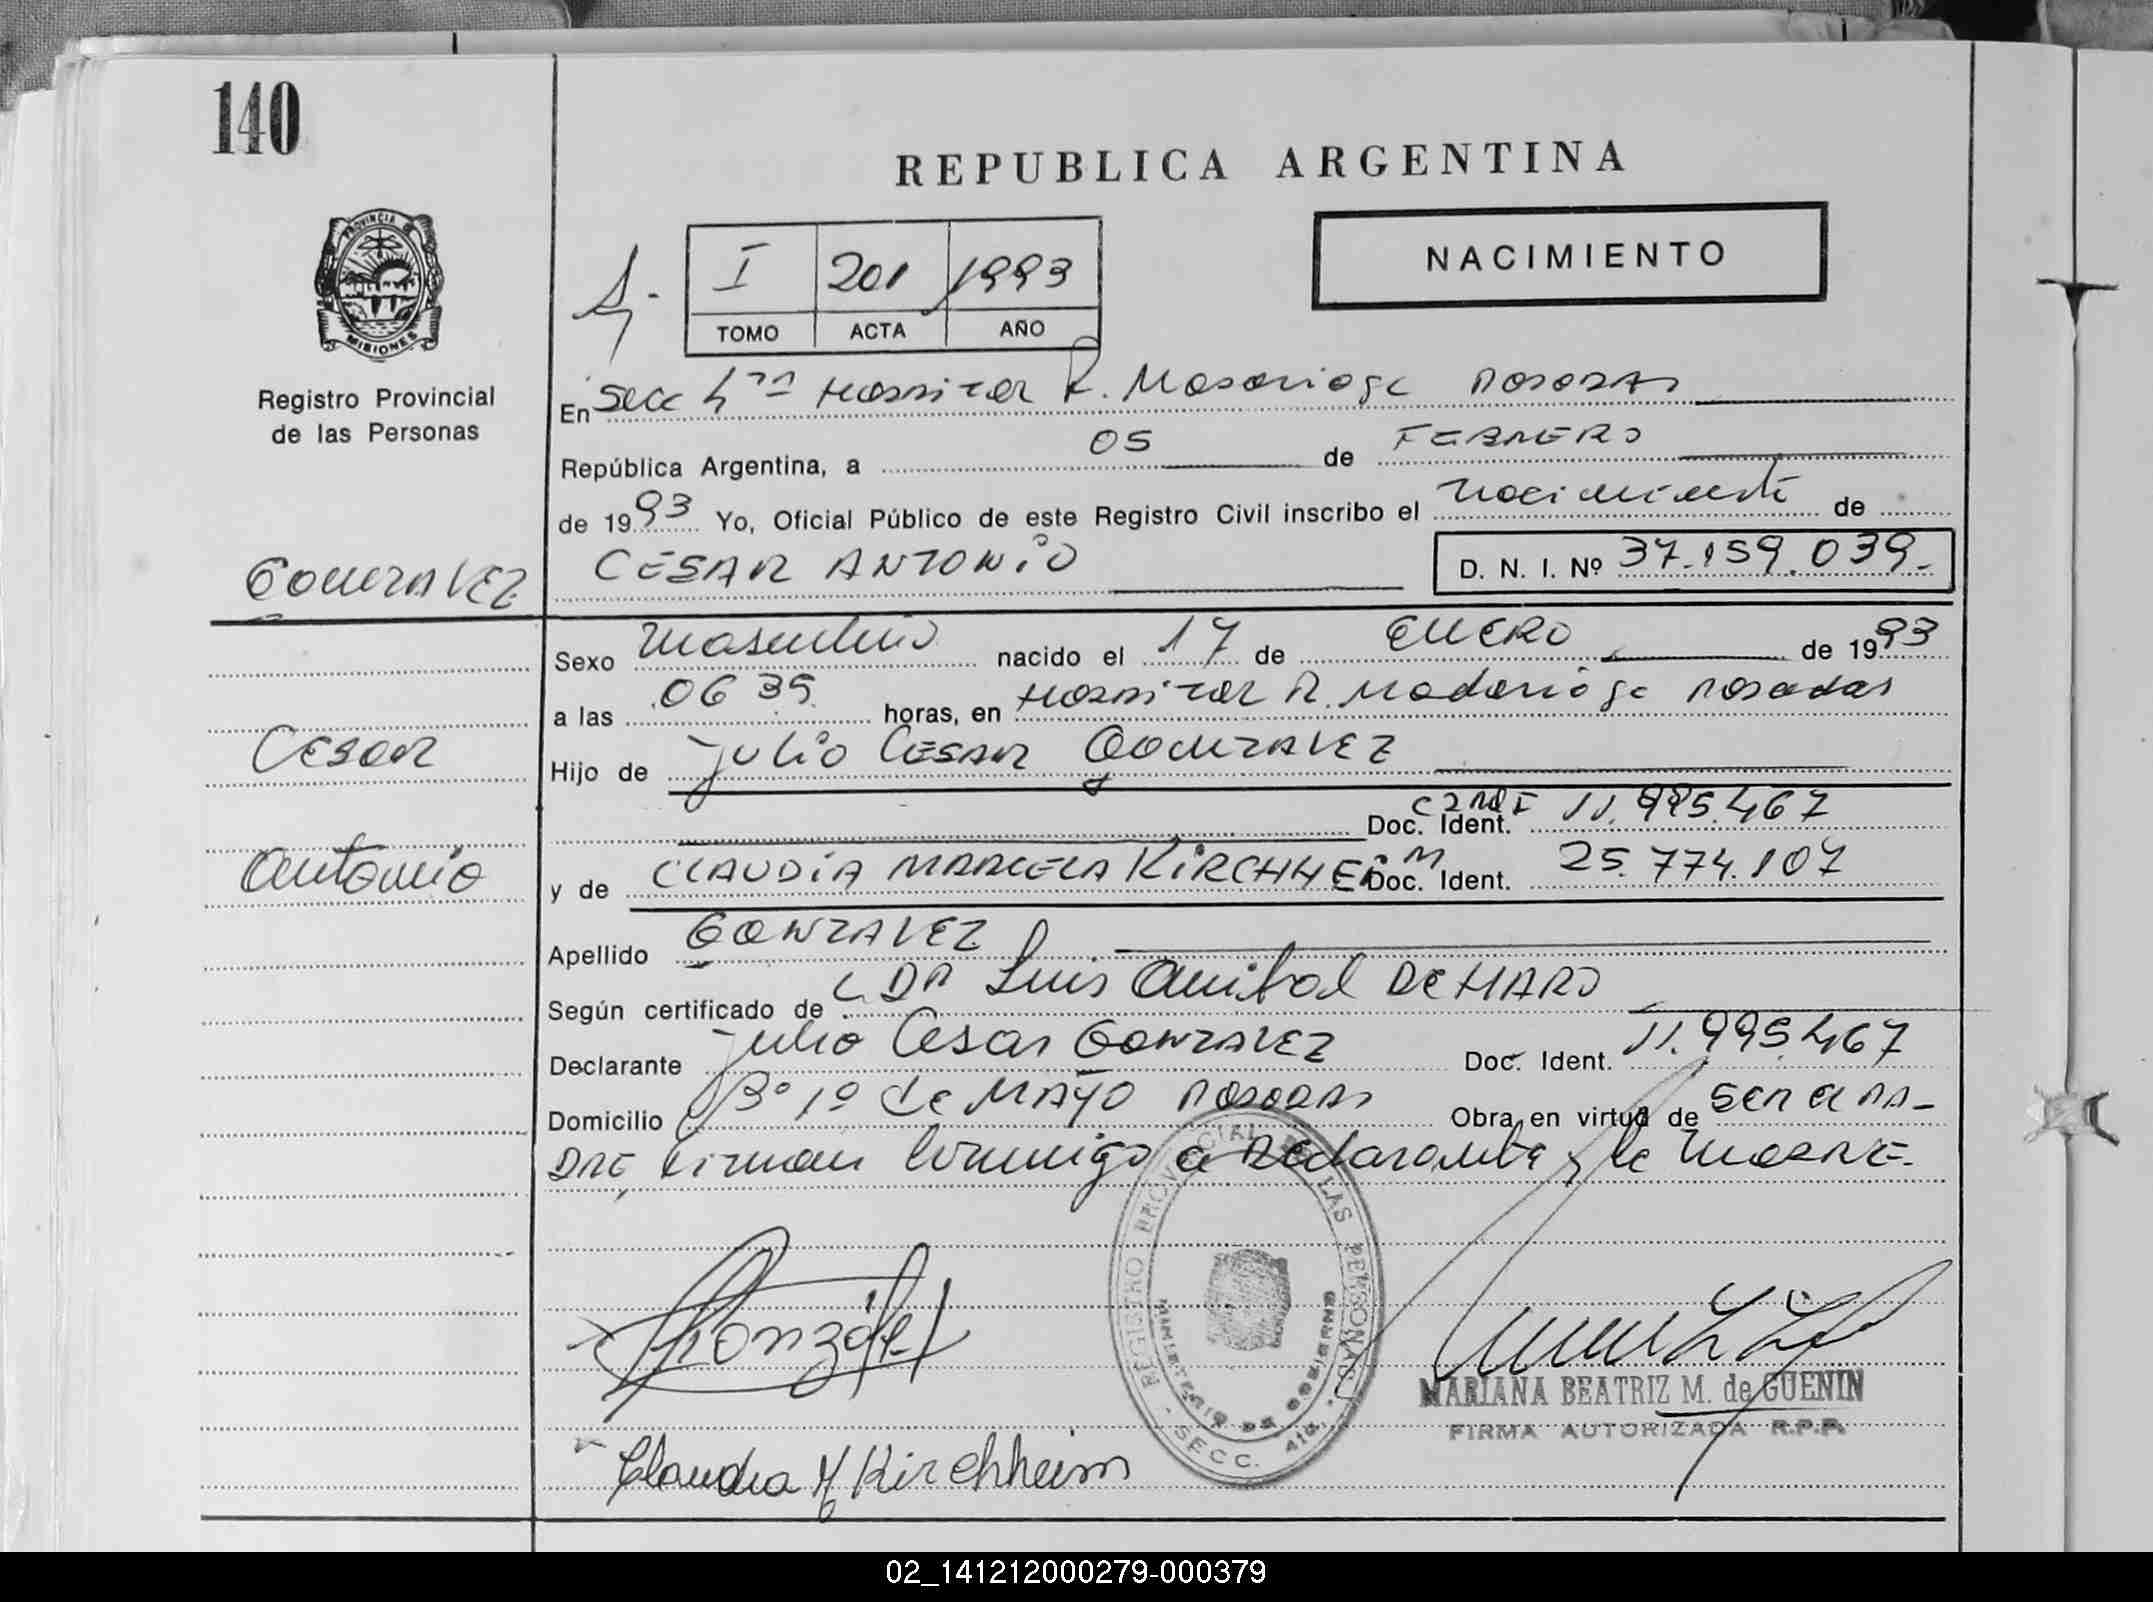 140
REPUBLICA ARGENTINA
PROVINCIA DE MISIONES
I 201 1993
TOMO ACTA AÑO
NACIMIENTO
Registro Provincial
de las Personas
En Secc 4ta Hospital R. Madariaga Posadas
República Argentina, a 05 de FEBRERO
de 1993 Yo, Oficial Público de este Registro Civil inscribo el nacimiento de
GONZALEZ CESAR ANTONIO D. N. I. Nº 37.159.039.-
Sexo Masculino nacido el 17 de ENERO de 1993
a las 06 35 horas, en Hospital R. Madariaga Posadas
Cesar Hijo de Julio CESAR GONZALEZ
Doc. Ident. 11.995.467
Antonio y de CLAUDIA MARCELA KIRCHHEIM Doc. Ident. 25.774.107
Apellido GONZALEZ
Según certificado de DR Luis Anibal DE HARO
Declarante Julio Cesar GONZALEZ Doc. Ident. 11.995.467
Domicilio Bº 1º de MAYO POSADAS Obra en virtud de SER el PA-
DRE, Firman conmigo el Declarante y la MADRE.-
REGISTRO PROVINCIAL DE LAS PERSONAS
MINISTERIO DE GOBIERNO
SECC. 4ta.
Gonzalez
MARIANA BEATRIZ M. de GUENIN
FIRMA AUTORIZADA R.P.P.
Claudia M Kirchheim
02_141212000279-000379